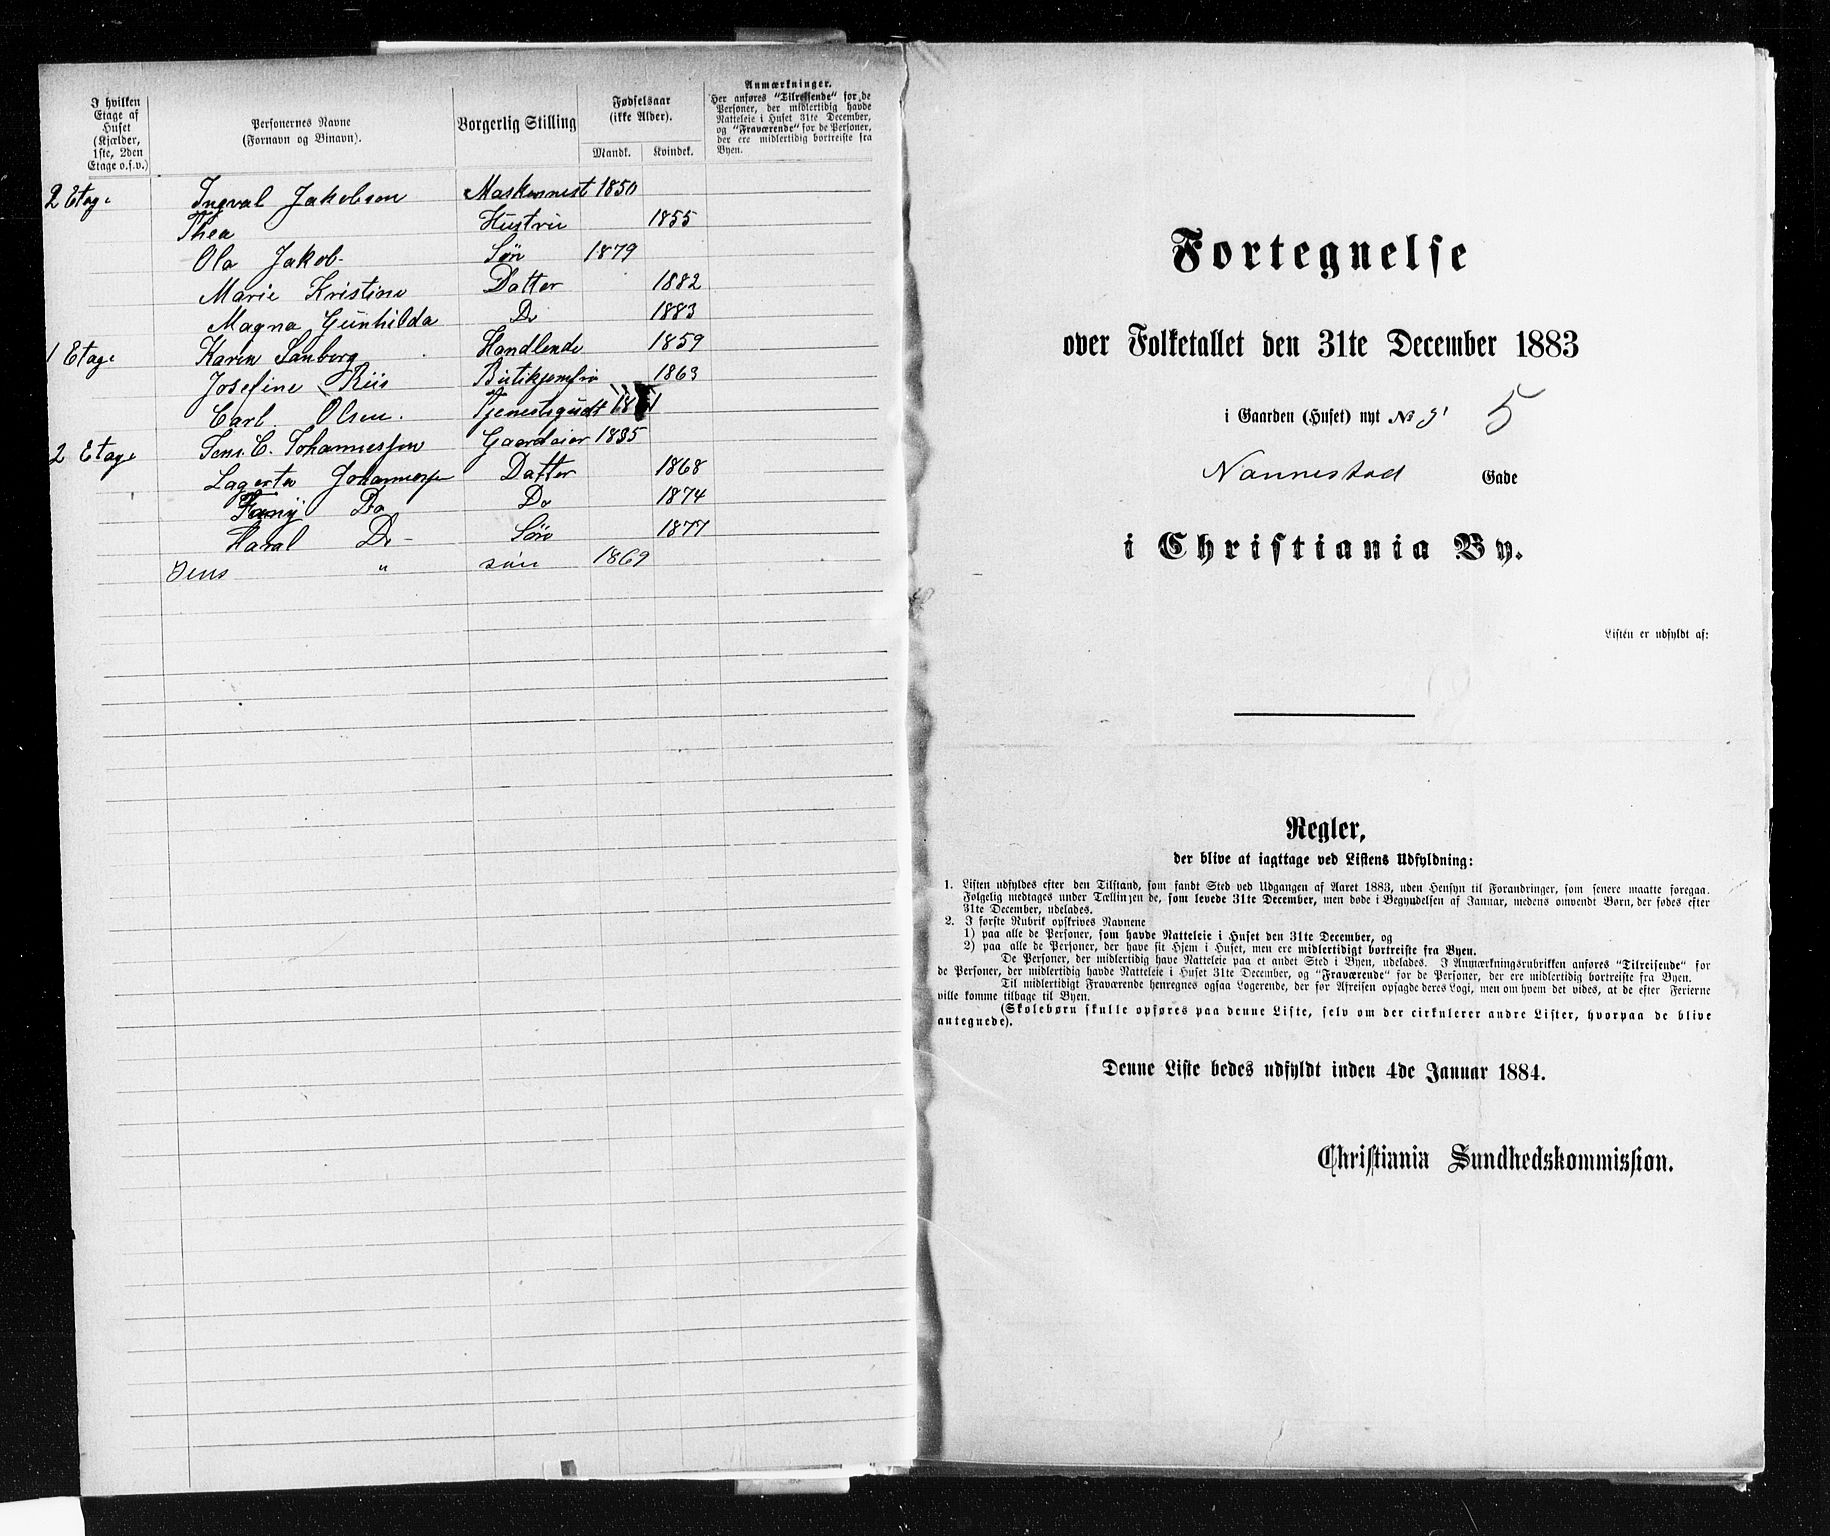 I hvilken
Etage af
Huset
(Kjælder,
1ste, 2den
Etage o.s.v.)
Personernes Navne
(Fornavn og Binavn).
Borgerlig Stilling
Fødselsaar
(ikke Alder).
Mandk. Kvindek.
Anmærkninger.
Her anføres "Tilreisende" for de
Personer, der midlertidig havde
Natteleie i Huset 31te December,
og "Fraværende" for de Personer,
der ere midlertidig bortreiste fra
Byen.
2 Etage Ingval Jakobson Maskennest 1850
Thea Hustru 1855
Ola Jakob Søn 1879
Marie Kristine Datter 1882
Magna Gunhilda Do 1883
1 Etage Karen Sanberg Handlende 1859
Josefine Riis Butikjomfru 1863
Carl Olsen. Tjenestegudt
2 Etage Jens. C. Johannessen Gaardeier 1835
Lagerta Johannessen Datter 1868
Fanny Do Do 1874
Haral Do Søn 1877
Jens " søn 1869
Fortegnelse
over Folketallet den 31te December 1883
i Gaarden (Huset) nyt No 5
Nannestad Gade
i Christiania By.
Listen er udfyldt af:
Regler,
der blive at iagttage ved Listens Udfyldning:
1. Listen udfyldes efter den Tilstand, som fandt Sted ved Udgangen af Aaret 1883, uden Hensyn til Forandringer, som senere maatte foregaa.
Følgelig medtages under Tællingen de, som levede 31te December, men døde i Begyndelsen af Januar, medens omvendt Børn, der fødes efter
31te December, udelades.
2. I første Rubrik opskrives Navnene
1) paa alle de Personer, som havde Natteleie i Huset den 31te December, og
2) paa alle de Personer, der have sit Hjem i Huset, men ere midlertidigt bortreiste fra Byen.
De Personer, der midlertidig have Natteleie paa et andet Sted i Byen, udelades. I Anmærkningsrubrikken anføres "Tilreisende" for
de Personer, der midlertidig havde Natteleie i Huset 31te December, og "Fraværende" for de Personer, der ere midlertidig bortreiste fra Byen.
Til midlertidigt Fraværende henregnes ogsaa Logerende, der før Afreisen opsagde deres Logi, men om hvem det vides, at de efter Ferierne
ville komme tilbage til Byen.
(Skolebørn skulle opføres paa denne Liste, selv om der cirkulerer andre Lister, hvorpaa de blive
antegnede).
Denne Liste bedes udfyldt inden 4de Januar 1884.
Christiania Sundhedskommission.